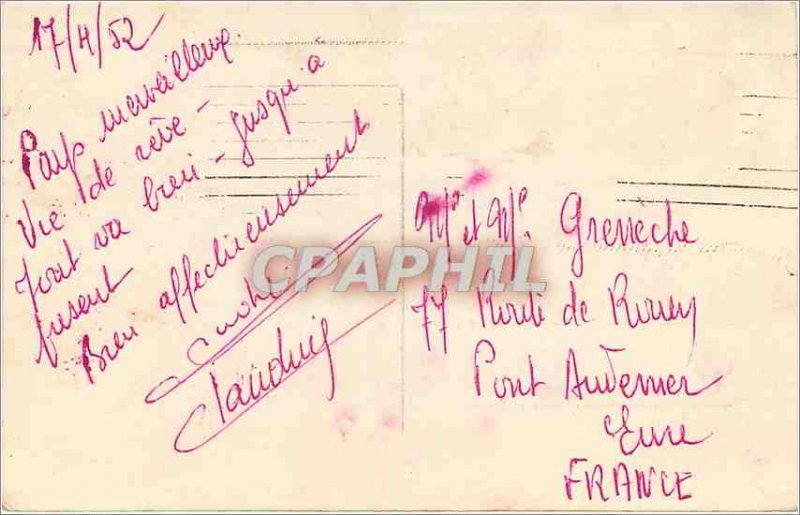 17/4/52
Pays merveilleux.
Vie de rêve -
Tout va bien - jusqu'à
present
Bien affectueusement
Claudine
Mr et Me. Greneche
77 Route de Rouen
Pont Audemer
Eure
FRANCE
CPARHIL